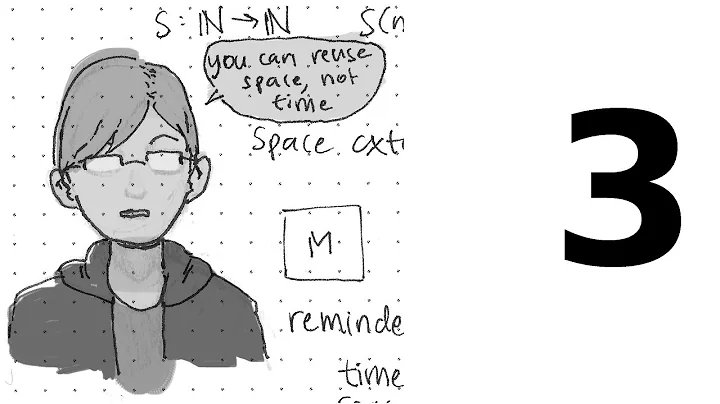 S: ℕ → ℕ S(n
you can reuse
space, not
time
Space ext
M
reminde
time
3